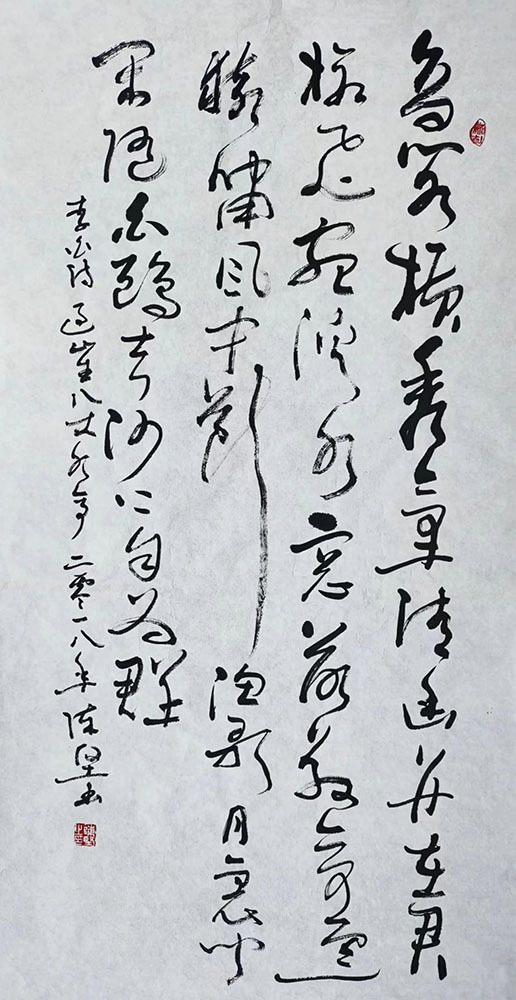 高阁横秀气清幽并在君
檐飞宛溪水窗落敬亭云
猿啸风中断渔歌月里闻
闲随白鸥去沙上自为群
李白诗过崔八丈水亭二零一八年陈坚书